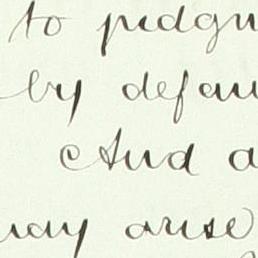 to judgm
by defau
And a
may arise